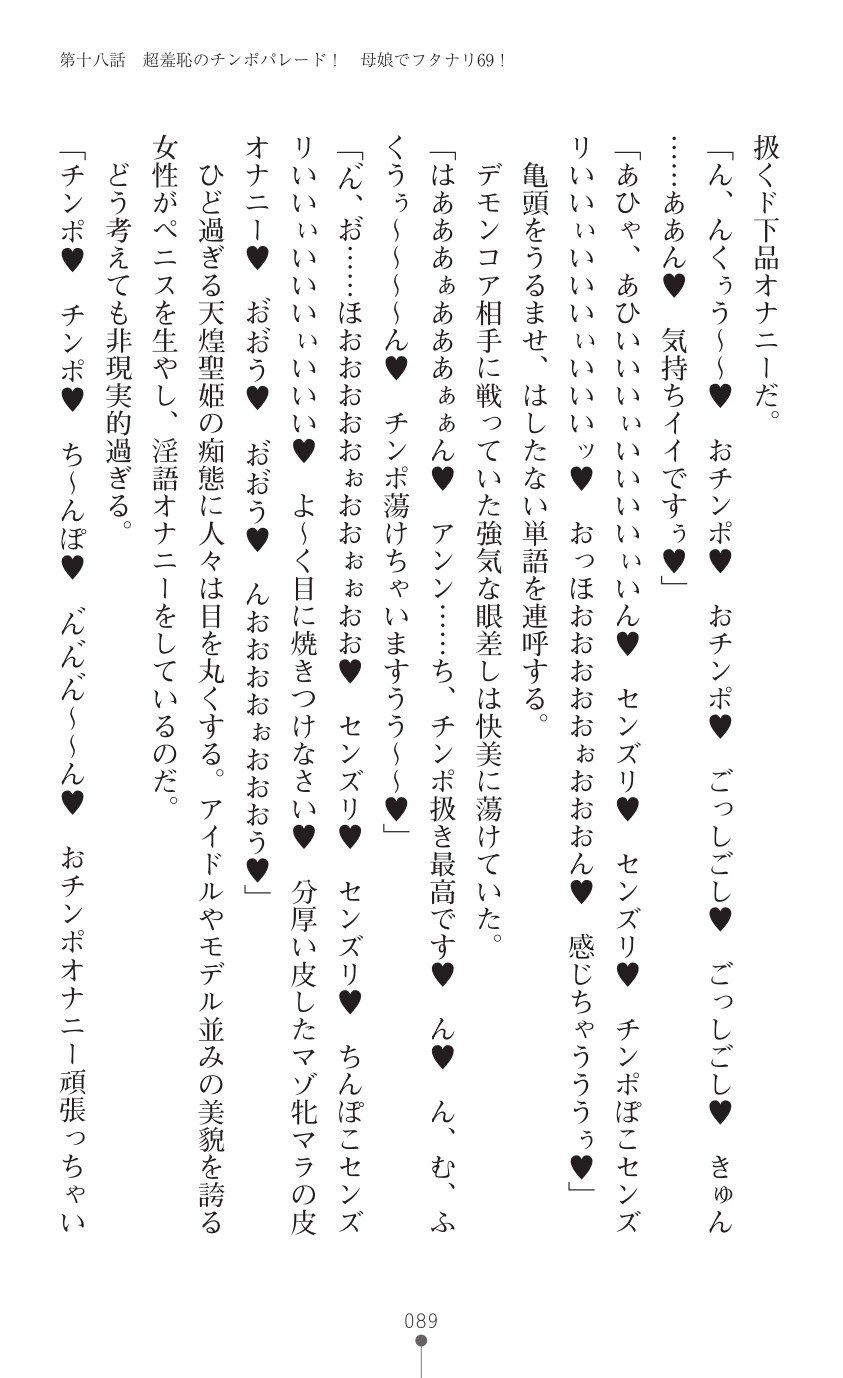 第十八話　超羞恥のチンポパレード！　母娘でフタナリ69！
扱くド下品オナニーだ。
「ん、んくぅう～～♥　おチンポ♥　おチンポ♥　ごっしごし♥　ごっしごし♥　きゅん
……ああん♥　気持ちイイですぅ♥」
「あひゃ、あひいいいぃいいいいいぃいん♥　センズリ♥　センズリ♥　チンポぽこセンズ
リいいぃいいいいぃいいいッ♥　おっほおおおおおぉおおおん♥　感じちゃうううぅ♥」
亀頭をうるませ、はしたない単語を連呼する。
デモンコア相手に戦っていた強気な眼差しは快美に蕩けていた。
「はあああぁあああぁぁん♥　アンン……ち、チンポ扱き最高です♥　ん♥　ん、む、ふ
くうぅ～～～～ん♥　チンポ蕩けちゃいますうう～～♥」
「ん゛、お゛……ほおおおおおおぉおおぉぉおお♥　センズリ♥　センズリ♥　ちんぽこセンズ
リいいぃいいいいぃいいい♥　よ～く目に焼きつけなさい♥　分厚い皮したマゾ牝マラの皮
オナニー♥　お゛お゛う♥　お゛お゛う♥　んおおおおぉおおおう♥」
ひど過ぎる天煌聖姫の痴態に人々は目を丸くする。アイドルやモデル並みの美貌を誇る
女性がペニスを生やし、淫語オナニーをしているのだ。
どう考えても非現実的過ぎる。
「チンポ♥　チンポ♥　ち～んぽ♥　ん゛ん゛ん゛～～ん♥　おチンポオナニー頑張っちゃい
089